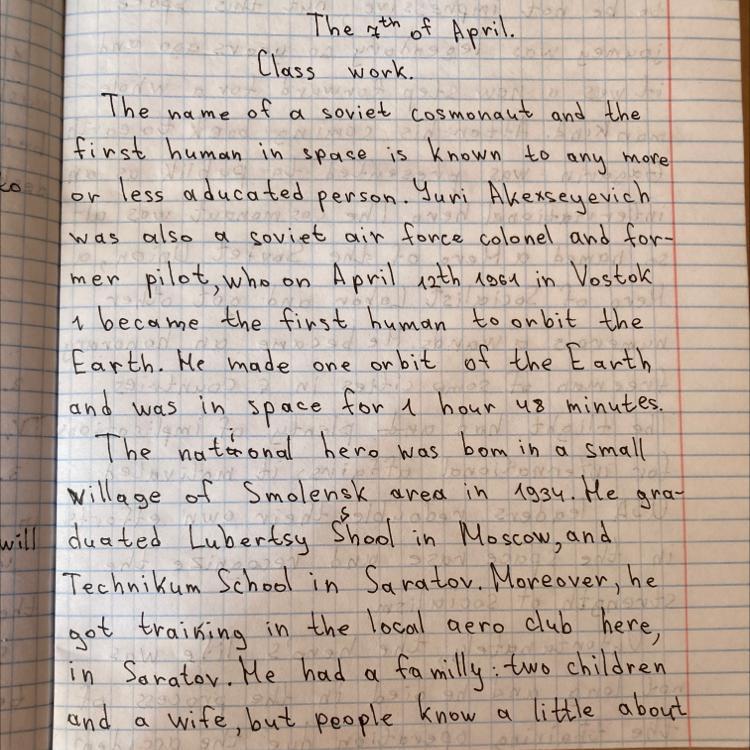 The 7th of April.
Class work.
The name of a soviet cosmonaut and the
first human in space is known to any more
or less aducated person. Yuri Akexseyevich
was also a soviet air force colonel and for-
mer pilot, who on April 12th 1961 in Vostok
1 became the first human to orbit the
Earth. He made one orbit of the Earth
and was in space for 1 hour 48 minutes.
The national hero was born in a small
village of Smolensk area in 1934. He gra-
duated Lubertsy Shool in Moscow, and
Technikum School in Saratov. Moreover, he
got training in the local aero club here,
in Saratov. He had a familly: two children
and a wife, but people know a little about
to
will